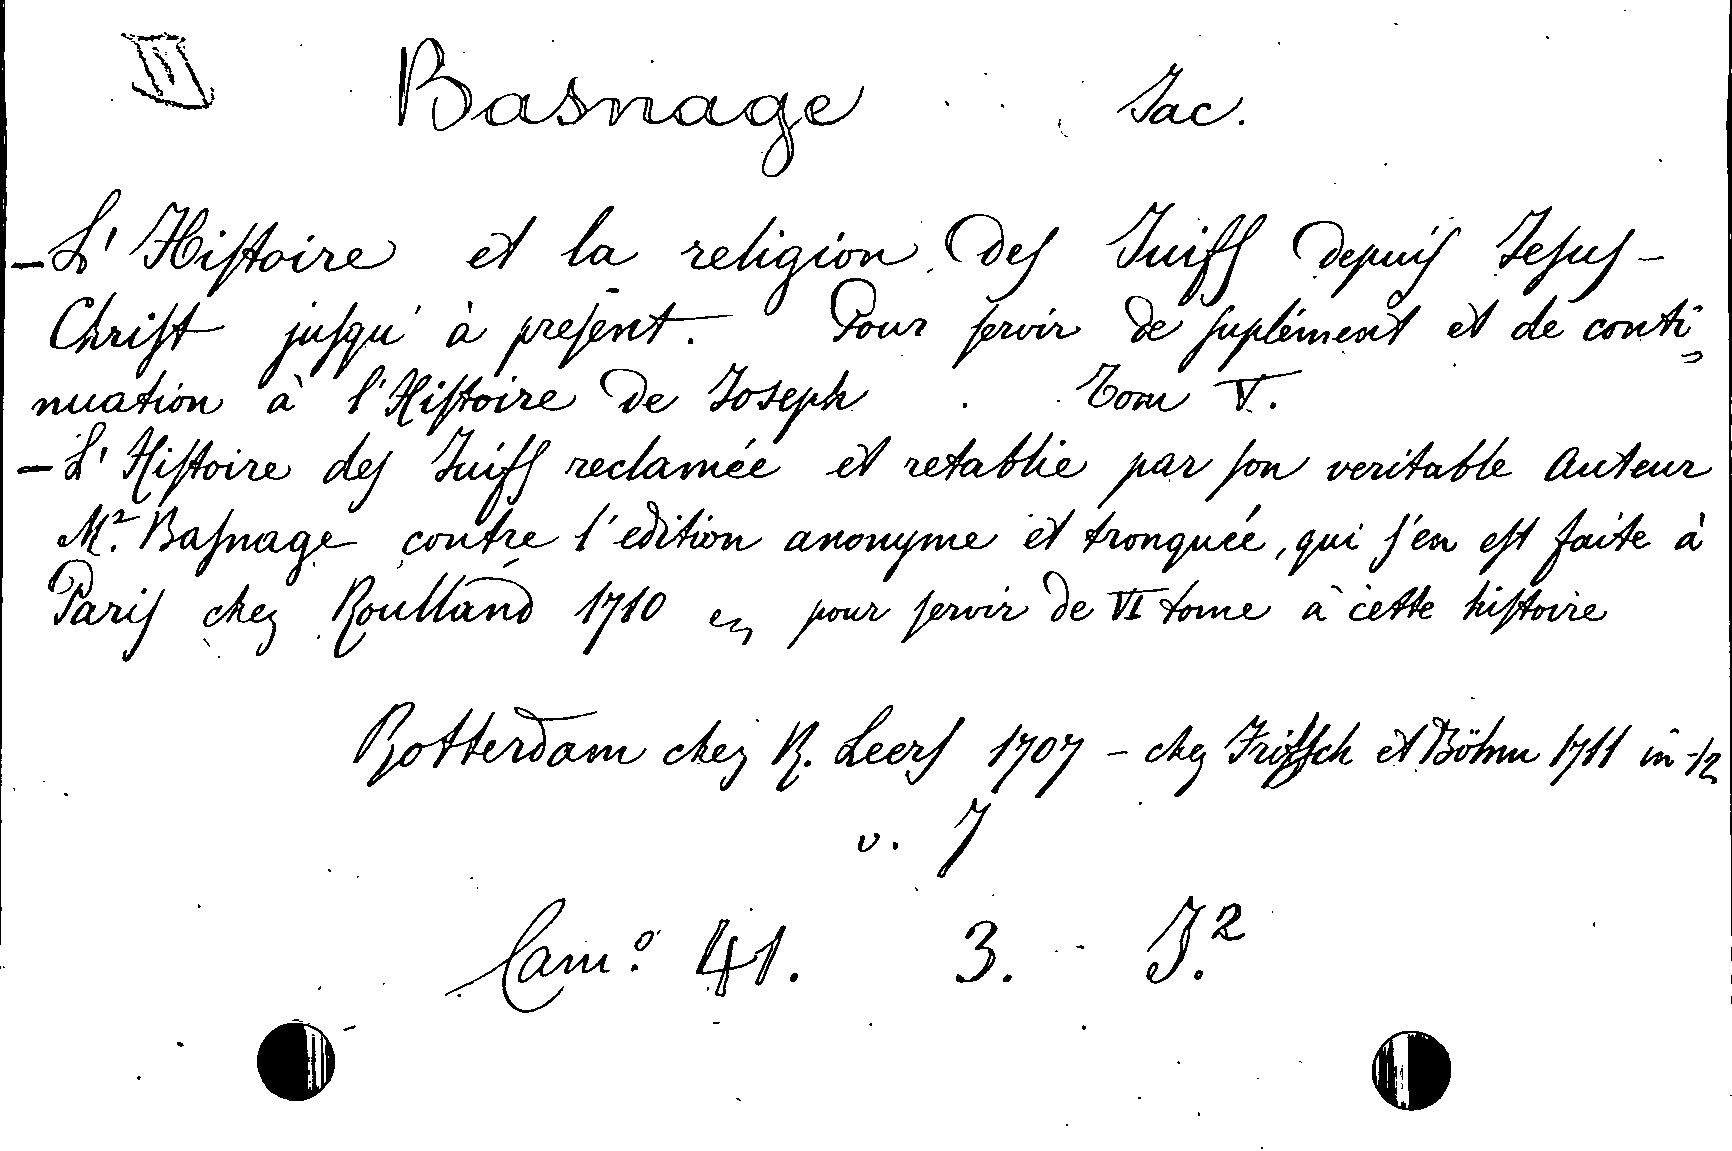 III Basnage Jac.
- L'Hiſtoire et la religion deſ Juifſ depuiſ Jeſuſ-
Chriſt juſqu'à preſent. Pour ſervir de ſuplément et de conti-
nuation à l'Hiſtoire de Joseph Tom V.
- L'Hiſtoire deſ Juifſ reclamée et retablie par ſon veritable Auteur
Mr. Baſnage contre l'edition anonyme et tronquée, qui ſ'en eſt faite à
Pariſ chez Roulland 1710 pour ſervir de VI tome à cette hiſtoire
Rotterdam chez R. Leerſ 1707 - chez Fritſch et Böhm 1711 in-12
v. 7
Cam.o 41. 3. J.2